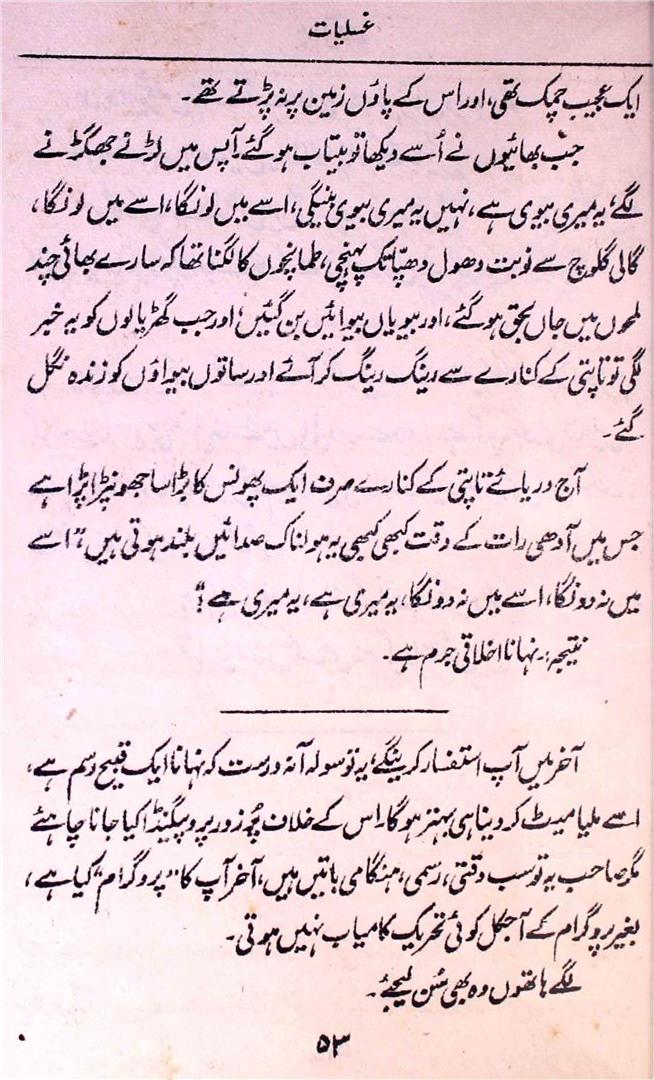 غسلیات
ایک عجیب چمک تھی، اور اس کے پاؤں زمین پر نہ پڑتے تھے۔
جب بھائیوں نے اُسے دیکھا تو بیتاب ہو گئے۔ آپس میں لڑنے جھگڑنے
لگے، یہ میری بیوی ہے، نہیں یہ میری بیوی بنیگی، اسے میں لونگا، اسے میں لونگا،
گالی گلوچ سے نوبت دھول دھپّا تک پہنچی، طمانچوں کا لگنا تھا کہ سارے بھائی چند
لمحوں میں جاں بحق ہو گئے، اور بیویاں بیوائیں بن گئیں، اور جب گھڑیالوں کو یہ خبر
لگی تو تاپتی کے کنارے سے رینگ رینگ کر آئے اور ساتوں بیواؤں کو زندہ نگل
گئے۔
آج دریائے تاپتی کے کنارے صرف ایک پھونس کا بڑا سا جھونپڑا پڑا ہے
جس میں آدھی رات کے وقت کبھی کبھی یہ ہولناک صدائیں بلند ہوتی ہیں، "اسے
میں نہ دونگا، اسے میں نہ دونگا، یہ میری ہے، یہ میری ہے!"
نتیجہ:۔ نہانا اخلاقی جرم ہے۔
آخر میں آپ استفسار کرینگے، یہ تو سولہ آنہ درست کہ نہانا ایک قبیح رسم ہے،
اسے ملیامیٹ کر دینا ہی بہتر ہوگا، اس کے خلاف پُر زور پروپیگنڈا کیا جانا چاہئے
مگر صاحب یہ تو سب وقتی، رسمی، ہنگامی باتیں ہیں، آخر آپ کا "پروگرام" کیا ہے،
بغیر پروگرام کے آجکل کوئی تحریک کامیاب نہیں ہوتی۔
لگے ہاتھوں وہ بھی سُن لیجئے۔
۵۳